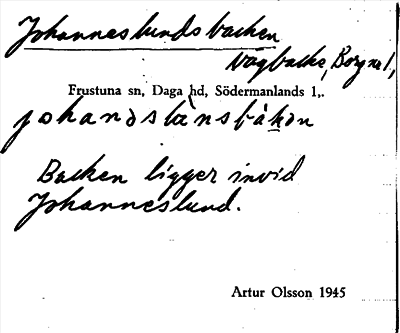 Johanneslundsbacken
Vägbacke,
Frustuna sn, Daga hd, Södermanlands l,.
Backen ligger invid
Johanneslund.
Artur Olsson 1945